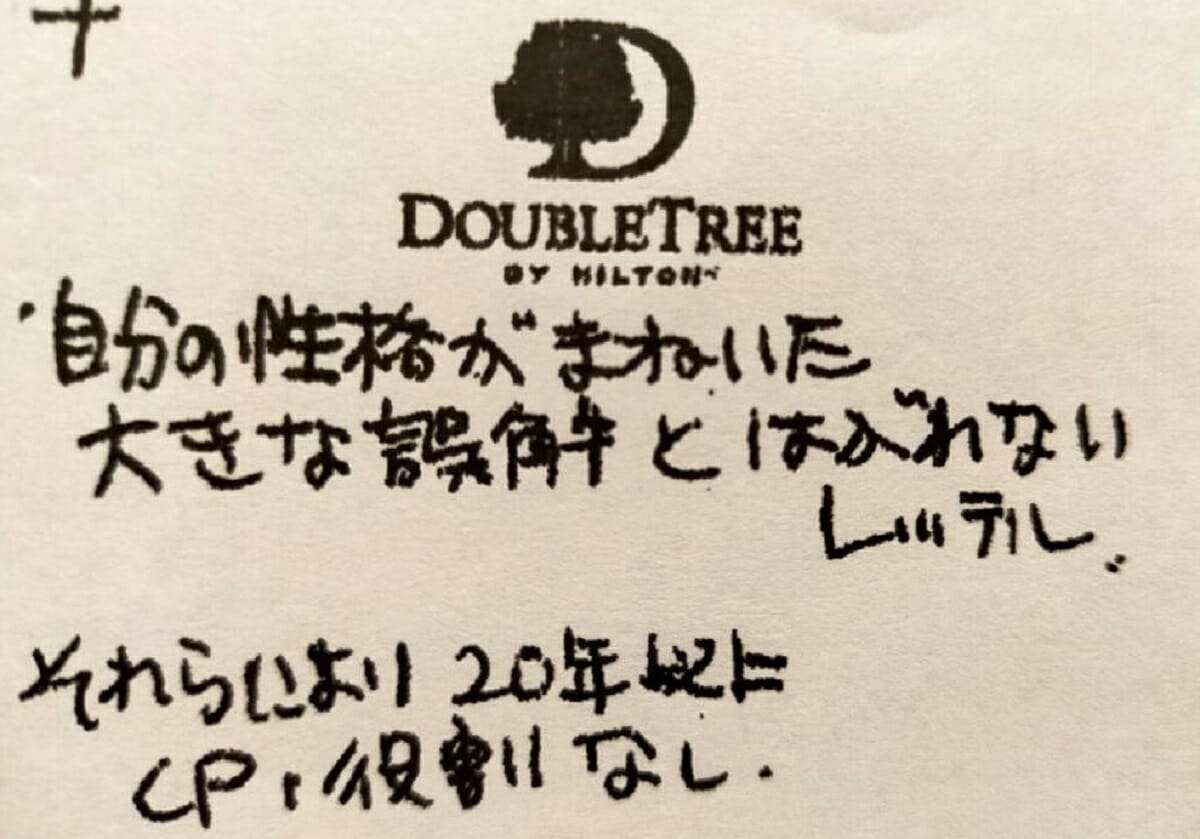 DOUBLETREE
BY HILTON
・自分の性格がまねいた
大きな誤解とはがれない
レッテル.
それらにより 20年
CP, 役割なし.